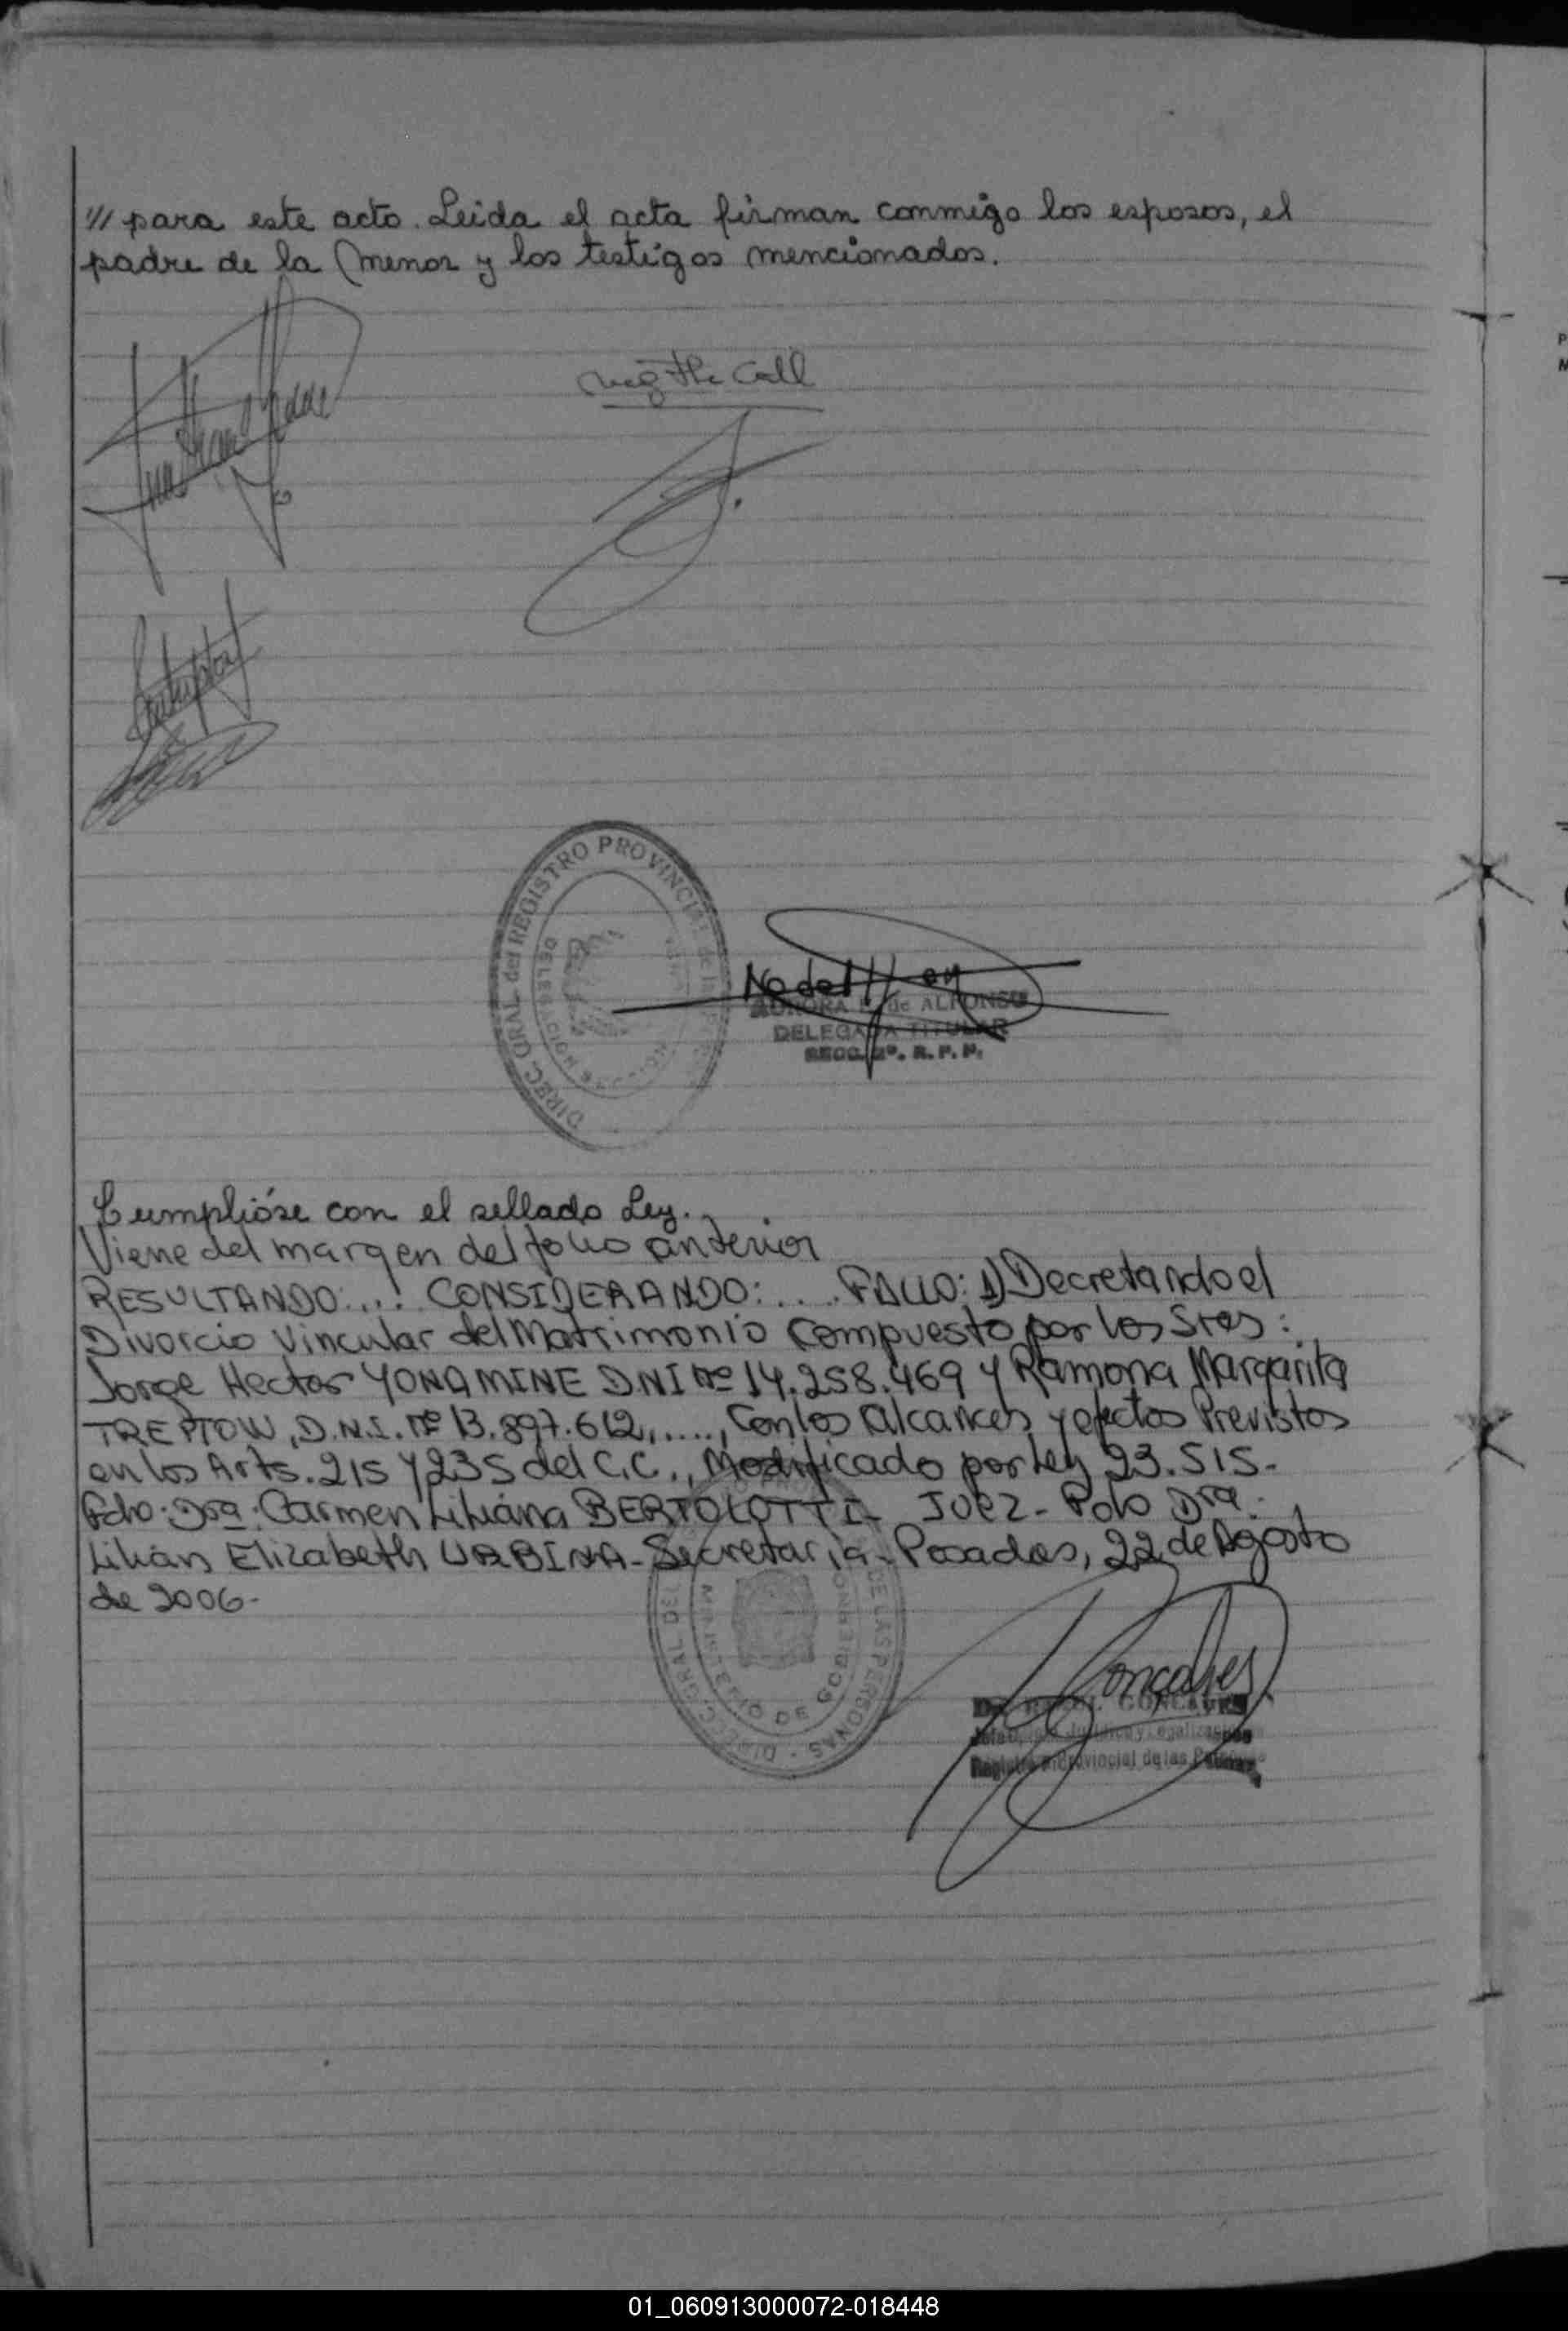 /// para este acto. Leida el acta firman conmigo los esposos, el
padre de la Menor y los testigos mencionados.
DIREC. GRAL. del REGISTRO PROVINCIAL de las
DELEGACION
AURORA de ALFONSO
DELEGADA TITULAR
SECC. 2ª. R. P. P.
Cumplióse con el sellado Ley.
Viene del margen del folio anterior
RESULTANDO:...! CONSIDERANDO:.... FALLO: 1) Decretando el
Divorcio Vincular del Matrimonio Compuesto por los Sres:
Jorge Hector YONAMINE D.N.I Nº 14.258.469 y Ramona Margarita
TREPTOW, D.N.I. Nº 13.897.612,...., Con los alcances y efectos Previstos
en los Arts. 215 y 235 del C.C., Modificado por Ley 23.515.-
Fdo. Dra. Carmen Liliana BERTOLOTTI- Juez- Fdo Dra.
Lilian Elizabeth URBINA- Secretaria- Posadas, 22 de Agosto
de 2006-
DIRECC. GRAL DEL DE LAS PERSONAS
MINISTERIO DE GOBIERNO
Gonçalves
Dr. GONCALVES
Jurídico y Legalizaciones
Registro Provincial de las Personas
01_060913000072-018448